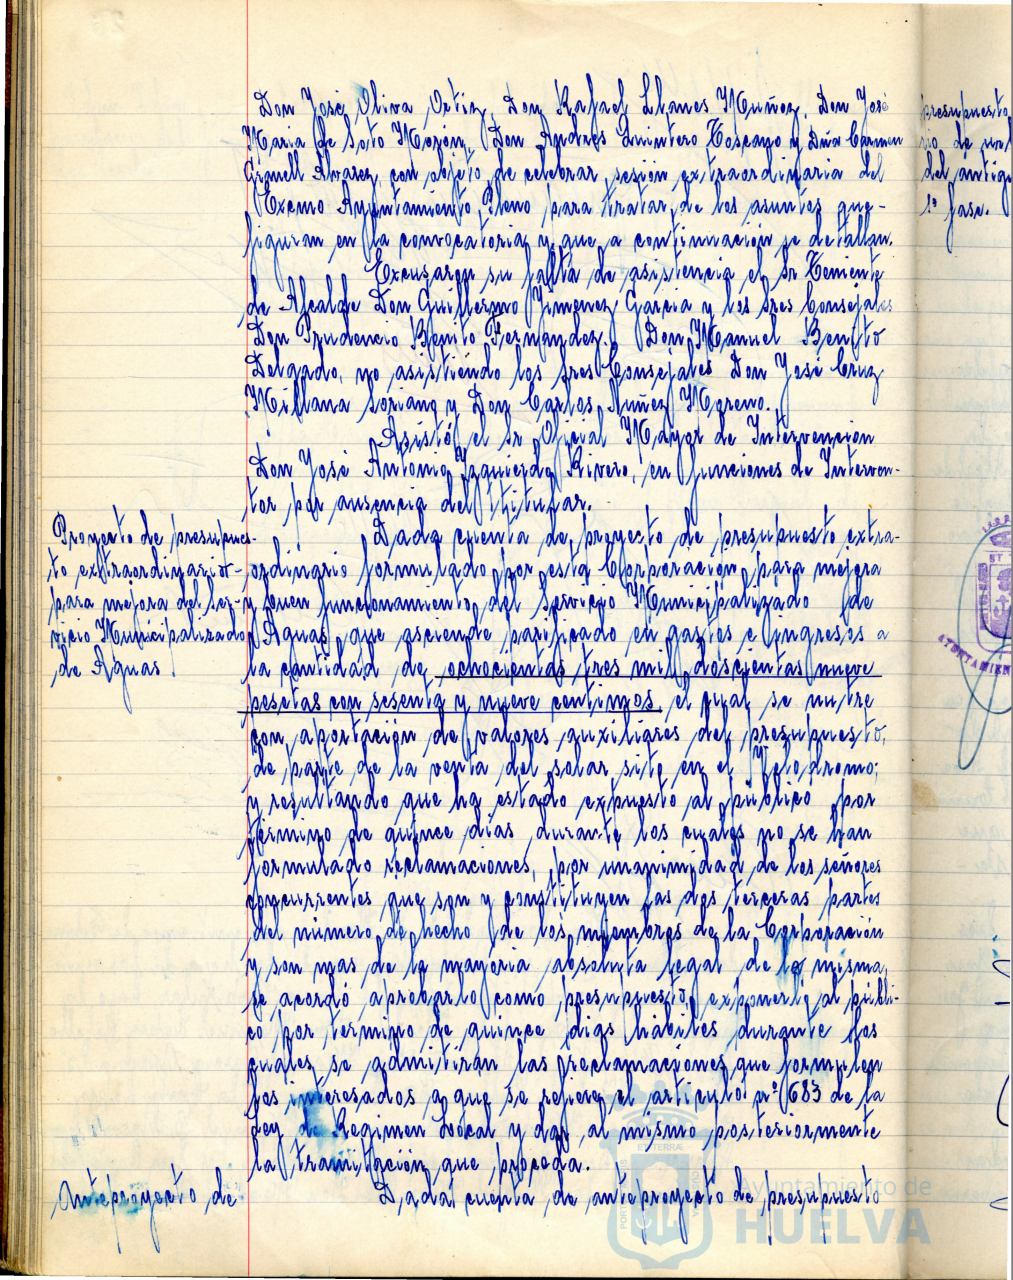 Don José Oliva Ortiz, Don Rafael Llanes Muñoz, Don José
Maria de Soto Morón, Don Andres Quintero Toscano y Dña Carmen
Granell Alvarez, con objeto de celebrar sesión extraordinaria del
Excmo Ayuntamiento Pleno para tratar de los asuntos que
figuran en la convocatoria y que a continuación se detallan.
Excusaron su falta de asistencia el Sr Teniente
de Alcalde Don Guillermo Jimenez Garcia y los Sres Consejales
Don Prudencio Benito Fernandez y Don Manuel Benito
Delgado, no asistiendo los Sres Consejales Don José Cruz
Millana Soriano y Don Carlos Nuñez Moreno.
Asistó el Sr Oficial Mayor de Intervención
Don José Antonio Izquierdo Rivero, en funciones de Interven-
tor por ausencia del titular.
Proyecto de presupues-
to extraordinario
para mejora del Ser-
vicio Municipalizado
de Aguas.
Dada cuenta de proyecto de presupuesto extra-
ordinario formulado por esta Corporación para mejora
y buen funcionamiento del Servicio Municipalizado de
Aguas, que asciende parificado en gastos e ingresos a
la cantidad de ochocientas tres mil doscientas nueve
pesetas con sesenta y nueve centimos, el cual se nutre
con aportación de valores auxiliares del presupuesto,
de parte de la venta del solar sito en el Velodromo;
y resultando que ha estado expuesto al público por
término de quince días, durante los cuales no se han
formulado reclamaciones, por unanimidad de los señores
concurrentes que son y constituyen las dos terceras partes
del número de hecho de los miembros de la Corporación
y son mas de la mayoria absoluta legal de la misma,
se acordó aprobarlo como presupuesto, exponerlo al públi-
co por termino de quince dias hábiles durante los
cuales se admitirán las reclamaciones que formulen
los interesados a que se refiere el articulo nº 683 de la
Ley de Regimen Local y dar al mismo posteriormente
la tramitación que proceda.
Anteproyecto de
Dada cuenta de anteproyecto de presupuesto
presupuesto
del antig
1ª fase.
Ayuntamiento de
HUELVA